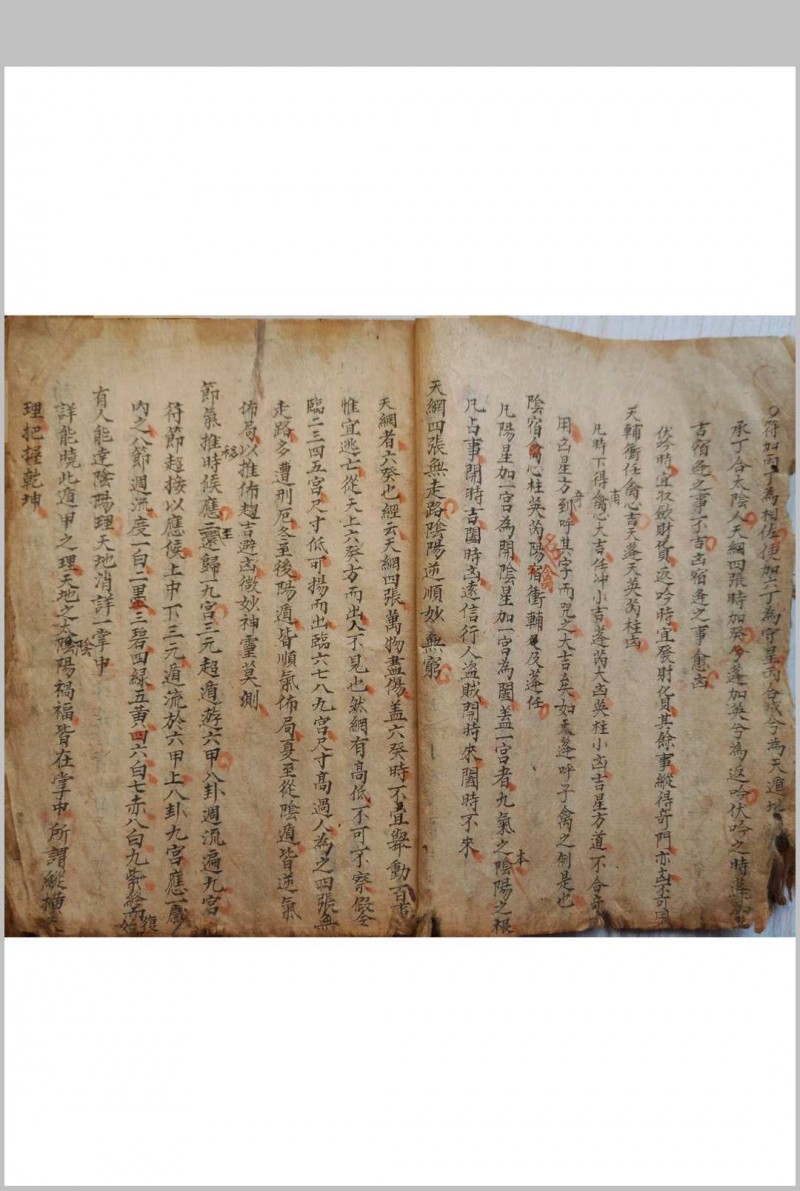 符加丙丁為相佐使加六丁為守星丙合戊兮為天遁地
承丁合太陰人天網四張時加癸兮蓬加英兮為返吟伏吟之時蓬加蓬
吉宿逢之事不吉凶宿逢之事愈凶
伏吟時宜収斂財貨返吟時宜發財貨其餘事縱得奇門亦凶不可用
天輔衝任禽心吉天蓬天英芮柱凶
凡時下得禽心大吉任冲小吉蓬芮大凶英柱小凶吉星方道不合奇
用凶星方到呼其字而咒之大吉矣如天蓬呼子禽之例是也
陰宿禽心柱英芮陽宿衝輔及蓬任
凡陽星加一宮為開陰星加一宮為闔盖一宮者九氣之陰陽之根本
凡占事開時吉闔時凶遠信行人盜賊開時來闔時不來
天網四張無走路陰陽逆順妙無窮
天網者六癸也經云天網四張萬物盡傷盖六癸時不宜舉動百吉
惟宜逃亡從天上六癸方而出人不見也然網有高低不可不察假令
臨二三四五宮尺寸低可揚而出臨六七八九宮尺寸高過人為之四張無
走路多遭刑厄冬至後陽遁皆順氣佈局夏至從陰遁皆逆氣
佈局以推佈趨吉避凶微妙神靈莫測
節氣推時候應三還歸一九宮三元超遁遊六甲八卦週流遍九宮
符節超接以應侯上中下三元遁流於六甲上八卦九宮應一歲
內之八節週流度一白二黑三碧四緑五黃六白七赤八白九紫終而復始
有人能達陰陽理天地消詳一掌中
詳能曉此遁甲之理天地之陰陽禍福皆在掌中所謂縱橫
理把握乾坤